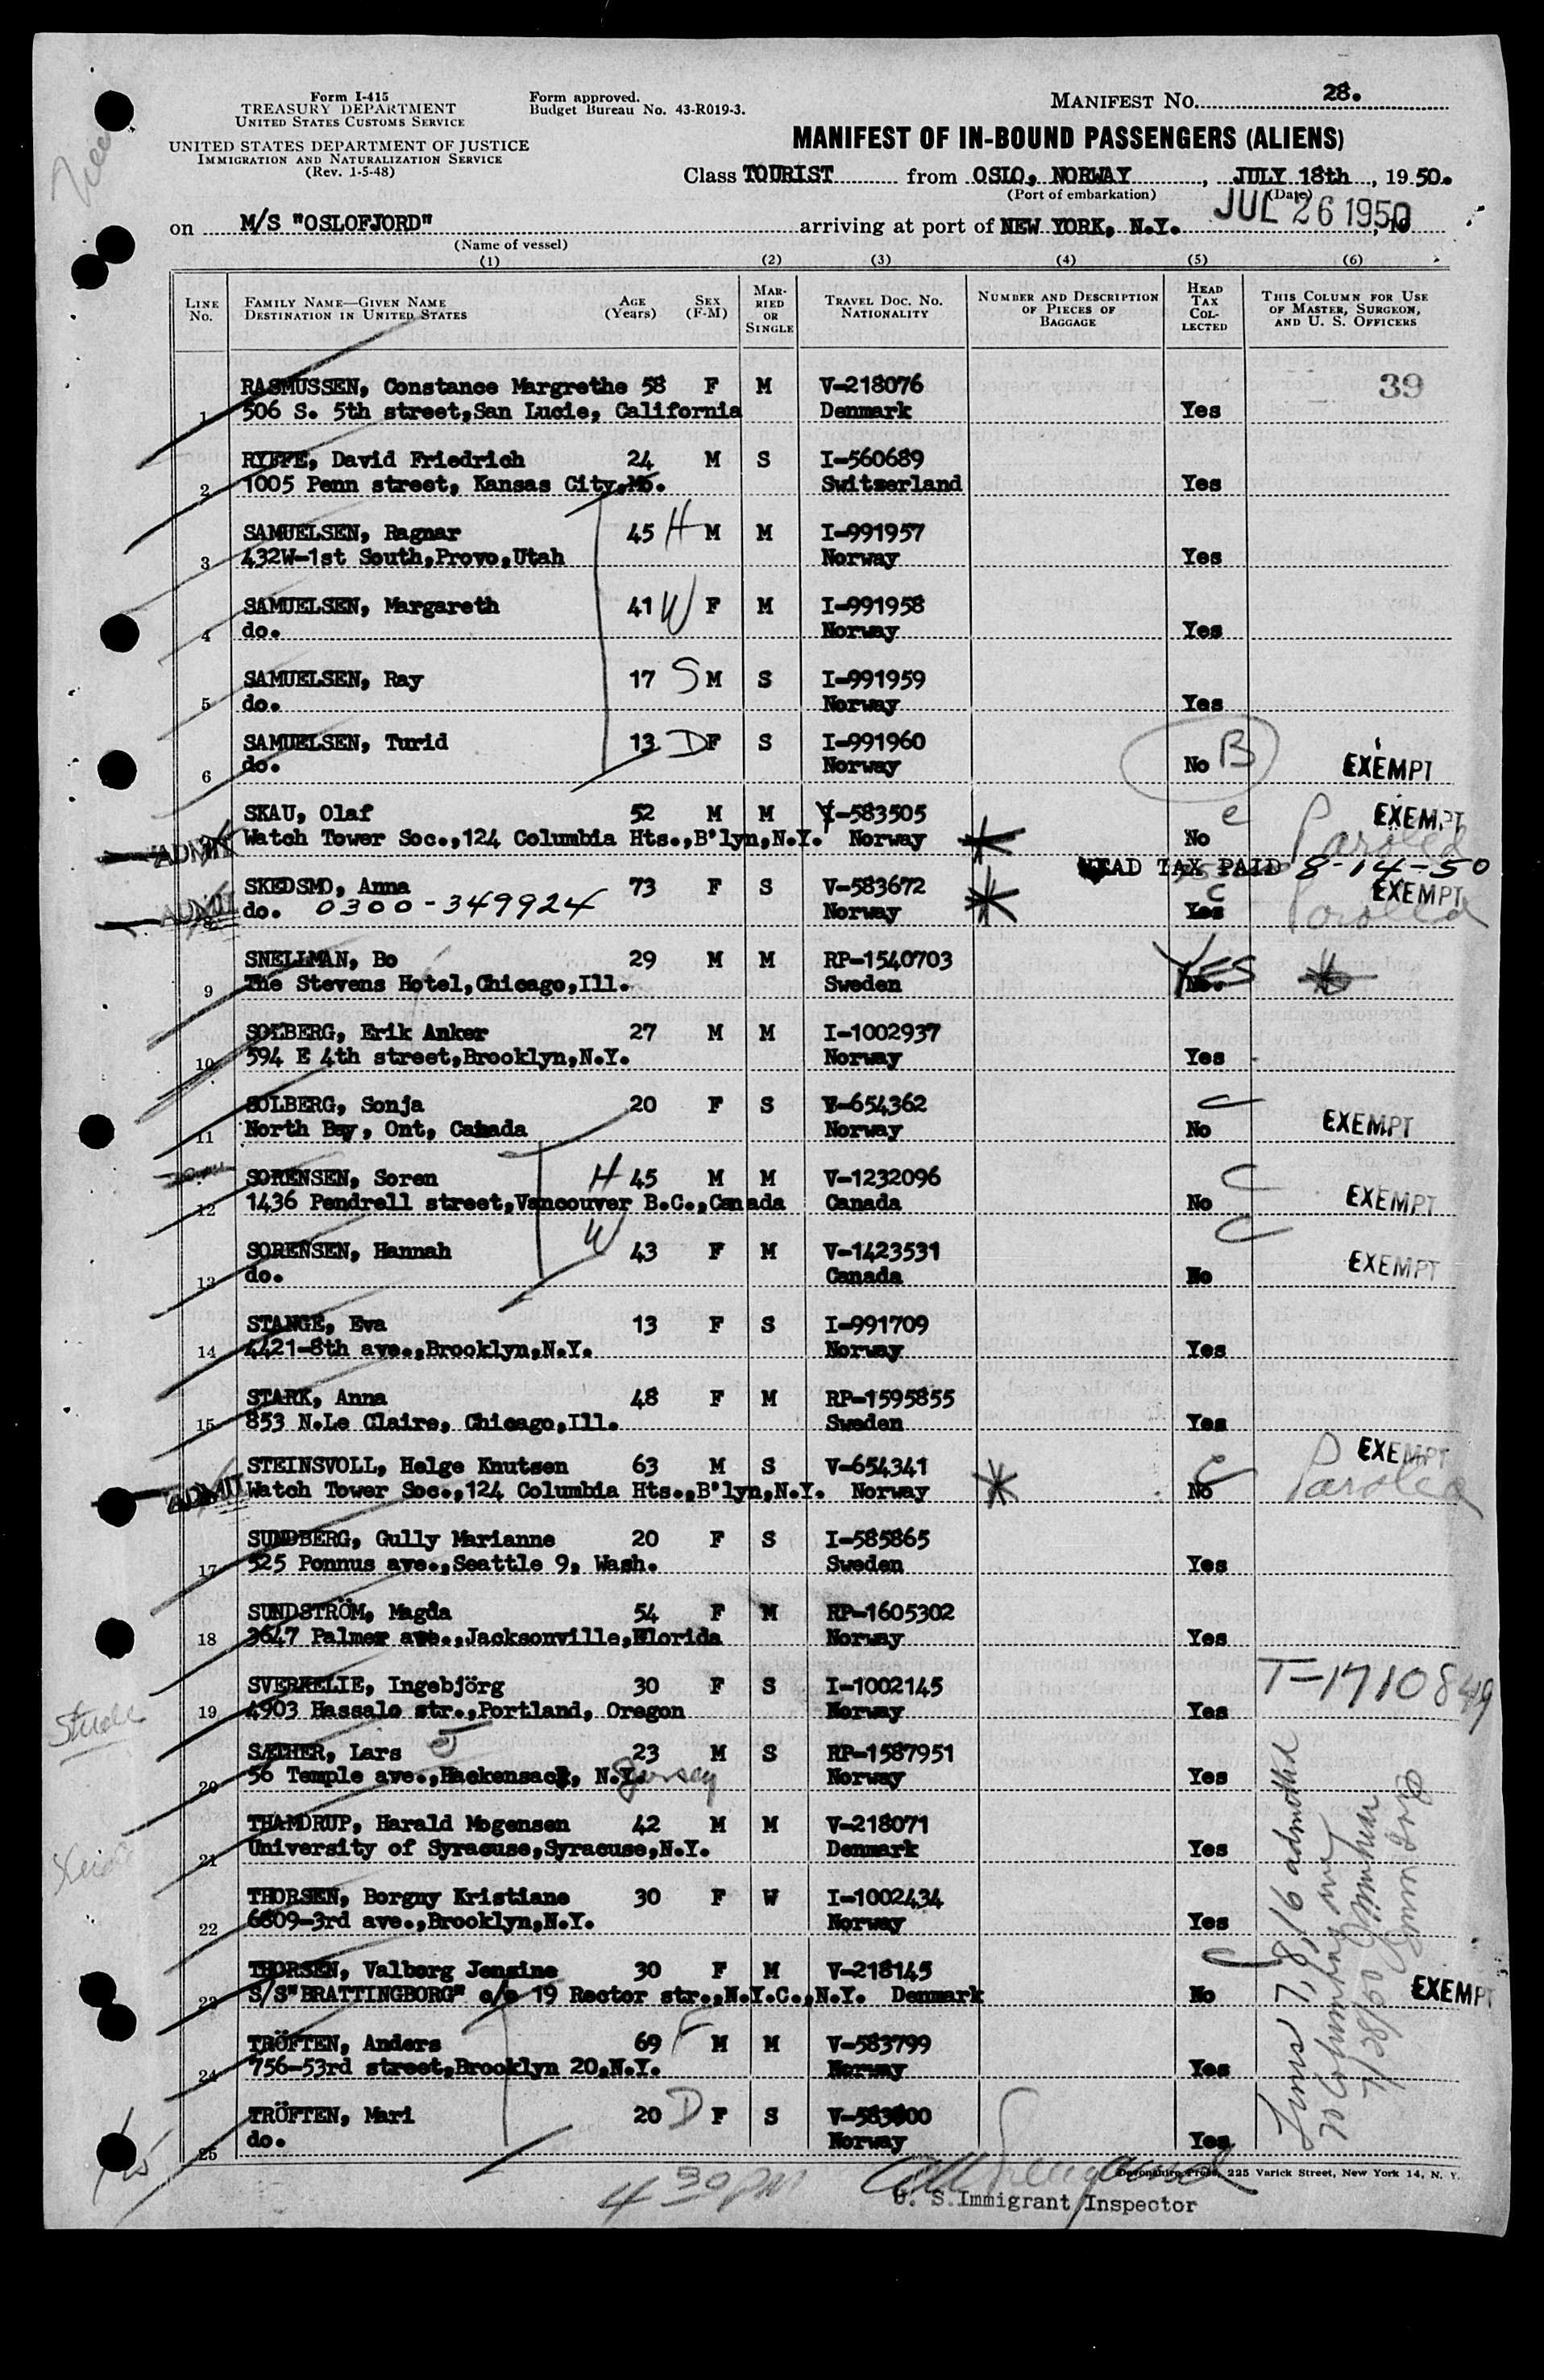 Form I-415
TREASURY DEPARTMENT
UNITED STATES CUSTOMS SERVICE
UNITED STATES DEPARTMENT OF JUSTICE
IMMIGRATION AND NATURALIZATION SERVICE
(Rev. 1-5-48)
Form approved.
Budget Bureau No. 43-R019-3.
MANIFEST NO. 28.
MANIFEST OF IN-BOUND PASSENGERS (ALIENS)
Class TOURIST from OSLO, NORWAY, JULY 18th, 1950.
(Port of embarkation) (Date)
on M/S "OSLOFJORD" arriving at port of NEW YORK, N.Y. JUL 26 1950
(Name of vessel)
(1) (2) (3) (4) (5) (6)
LINE No. FAMILY NAME—GIVEN NAME DESTINATION IN UNITED STATES AGE (Years) SEX (F-M) MARRIED OR SINGLE TRAVEL DOC. NO. NATIONALITY NUMBER AND DESCRIPTION OF PIECES OF BAGGAGE HEAD TAX COLLECTED THIS COLUMN FOR USE OF MASTER, SURGEON, AND U. S. OFFICERS
RASMUSSEN, Constance Margrethe 58 F M V-218076 39
1 506 S. 5th street,San Lucie, California Denmark Yes
RYFFE, David Friedrich 24 M S I-560689
2 1005 Penn street, Kansas City,Mo. Switzerland Yes
SAMUELSEN, Ragnar 45 H M M I-991957
3 432W-1st South,Provo,Utah Norway Yes
SAMUELSEN, Margareth 41 W F M I-991958
4 do. Norway Yes
SAMUELSEN, Ray 17 S M S I-991959
5 do. Norway Yes
SAMUELSEN, Turid 13 D F S I-991960
6 do. Norway No B EXEMPT
SKAU, Olaf 52 M M V-583505 c EXEMPT
ADMIT Watch Tower Soc.,124 Columbia Hts.,B'lyn,N.Y. Norway No Paroled
HEAD TAX PAID 8-14-50
SKEDSMO, Anna 73 F S V-583672 c EXEMPT
ADMIT 8 do. 0300-349924 Norway Yes Paroled
SNELLMAN, Bo 29 M M RP-1540703 YES
9 The Stevens Hotel,Chicago,Ill. Sweden No.
SOLBERG, Erik Anker 27 M M I-1002937
10 594 E 4th street,Brooklyn,N.Y. Norway Yes
SOLBERG, Sonja 20 F S V-654362 c
11 North Bay, Ont, Canada Norway No EXEMPT
SORENSEN, Soren H 45 M M V-1232096 C
12 1436 Pendrell street,Vancouver B.C.,Canada Canada No EXEMPT
SORENSEN, Hannah W 43 F M V-1423531 C
13 do. Canada No EXEMPT
STANGE, Eva 13 F S I-991709
14 4421-8th ave.,Brooklyn,N.Y. Norway Yes
STARK, Anna 48 F M RP-1595855
15 853 N.Le Claire, Chicago,Ill. Sweden Yes
STEINSVOLL, Helge Knutsen 63 M S V-654341 c EXEMPT
ADMIT Watch Tower Soc.,124 Columbia Hts.,B'lyn,N.Y. Norway No Paroled
SUNDBERG, Gully Marianne 20 F S I-585865
17 525 Ponnus ave.,Seattle 9, Wash. Sweden Yes
SUNDSTRÖM, Magda 54 F M RP-1605302
18 3647 Palmer ave.,Jacksonville,Florida Norway Yes
SVERKELIE, Ingebjörg 30 F S I-1002145 T-1710849
19 4903 Hassalo str.,Portland, Oregon Norway Yes
SÆTHER, Lars 23 M S RP-1587951
20 56 Temple ave.,Hackensack, N.Y. Jersey Norway Yes
THAMDRUP, Harald Mogensen 42 M M V-218071
21 University of Syracuse,Syracuse,N.Y. Denmark Yes
THORSEN, Borgny Kristiane 30 F W I-1002434
22 6809-3rd ave.,Brooklyn,N.Y. Norway Yes
THORSEN, Valborg Jensine 30 F M V-218145 C
23 S/S"BRATTINGBORG" c/o 19 Rector str.,N.Y.C.,N.Y. Denmark No EXEMPT
TRÖFTEN, Anders 69 F M M V-583799
24 756-53rd street,Brooklyn 20,N.Y. Norway Yes
TRÖFTEN, Mari 20 D F S V-583800
25 do. Norway Yes
Lines 7, 8, 16 admitted
4 30 PM
Devonshire Press, 225 Varick Street, New York 14, N. Y.
U. S. Immigrant Inspector